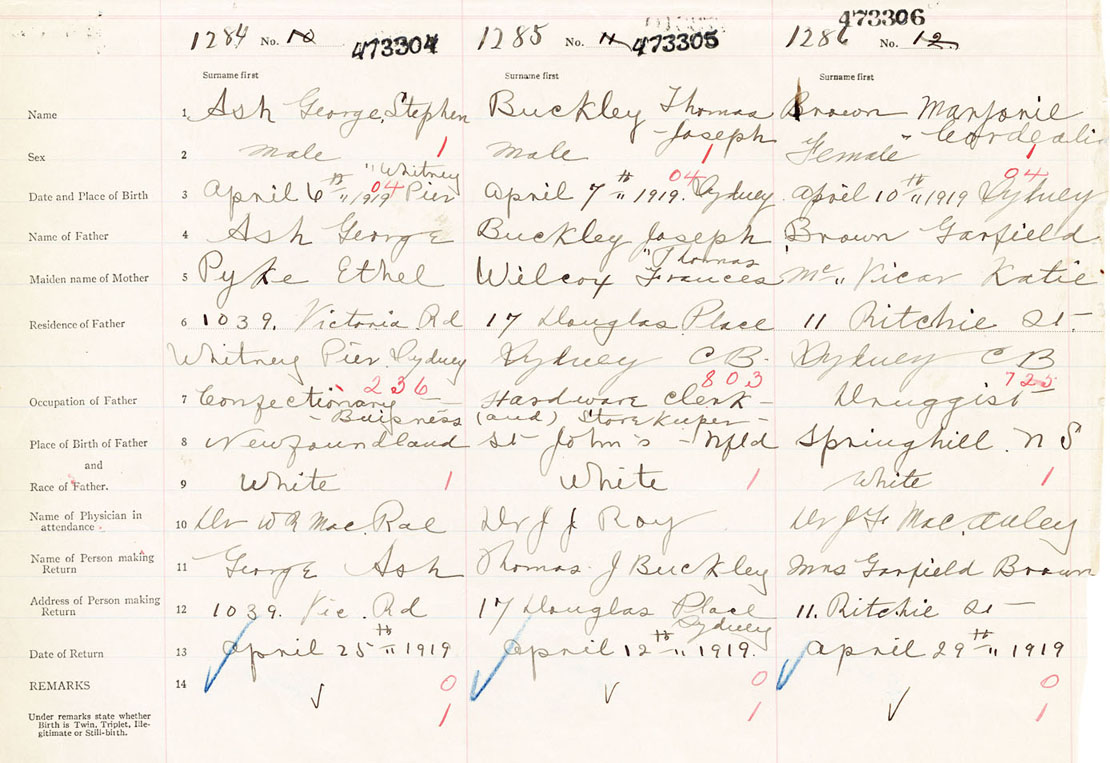 473306
1284 No. 10 473304 1285 No. 11 473305 1286 No. 12
Surname first Surname first Surname first
Name 1 Ash George Stephen Buckley Thomas Brown Marjorie
Joseph " Cordealia
Sex 2 male 1 male 1 Female 1
" Whitney 04 04
Date and Place of Birth 3 April 6th " 1919 04 Pier April 7th " 1919. Sydney April 10th " 1919 Sydney
Name of Father 4 Ash George Buckley Joseph Brown Garfield
" Thomas
Maiden name of Mother 5 Pyke Ethel Wilcox Frances Mc" Vicar Katie
Residence of Father 6 1039. Victoria Rd 17 Douglas Place 11 Ritchie St
Whitney Pier Sydney Sydney C B. Sydney C B
236 803 725
Occupation of Father 7 Confectionary Hardware Clerk Druggist
Buisness (and) Storekeeper
Place of Birth of Father 8 Newfoundland St John's Nfld Springhill N S
and
Race of Father. 9 White 1 White 1 White 1
Name of Physician in
attendance 10 Dr W R Mac Rae Dr J J Roy Dr J F Mac auley
Name of Person making
Return 11 George Ash Thomas J Buckley Mrs Garfield Brown
Address of Person making
Return 12 1039. Vic. Rd 17 Douglas Place 11. Ritchie St
Sydney
Date of Return 13 April 25th " 1919 April 12th " 1919. April 29th " 1919
REMARKS 14 0 0 0
Under remarks state whether
Birth is Twin, Triplet, Ille-
gitimate or Still-birth. 1 1 1